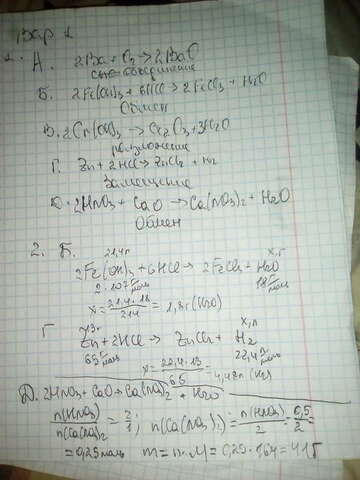 Вар 1
1. А. 2Ba + O₂ → 2BaO
соединение
Б. 2Fe(OH)₃ + 6HCl → 2FeCl₃ + H₂O
Обмен
В. 2Cr(OH)₃ → Cr₂O₃ + 3H₂O
разложение
Г. Zn + 2HCl → ZnCl₂ + H₂
Замещение
Д. 2HNO₃ + CaO → Ca(NO₃)₂ + H₂O
Обмен
2. Б. 21,4г x, г
2Fe(OH)₃ + 6HCl → 2FeCl₃ + H₂O
2·107 г/моль 18 г/моль
x = 21,4·18/214 = 1,8г (H₂O)
Г 13г x, л
Zn + 2HCl → ZnCl₂ + H₂
65 г/моль 22,4 л/моль
x = 22,4·13/65 = 4,48л (H₂)
Д. 2HNO₃ + CaO → Ca(NO₃)₂ + H₂O
n(HNO₃)/n(Ca(NO₃)₂ = 2/1; n(Ca(NO₃)₂) = n(HNO₃)/2 = 0,5/2 =
= 0,25 моль m = n·M = 0,25·164 = 41г